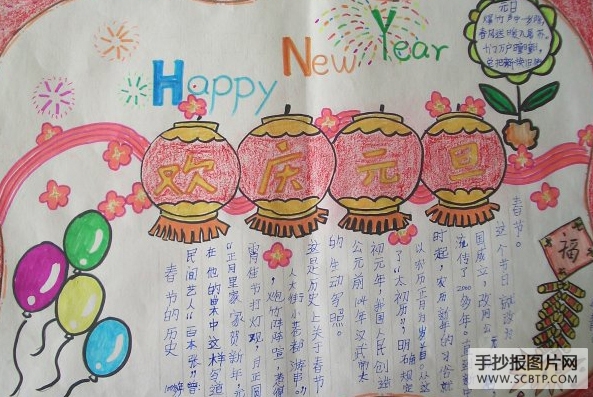 Happy New Year
元日
爆竹声中一岁除,
春风送暖入屠苏。
千门万户曈曈日,
总把新桃换旧符
欢庆元旦
福
春节的历史
民间艺人"百本张"曾
在他的曲本中这样写道
"正月里家家贺新年,元
宵佳节把灯观,月正圆
这是历史上关于春节
的生动写照。
公元前104年汉武帝太
初元年,我国人民创造
了"太初历",明确规定
以农历正月为岁首。从这
时起,农历新年的习俗就
流传了2000多年。
国成立,改用公元
这个节日 都改为
春节。
手抄报图片网
WWW.SCBTP.COM